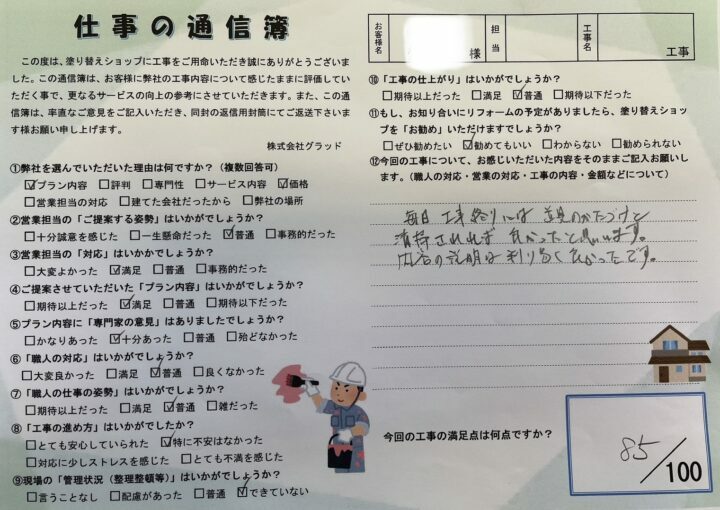 仕事の通信簿
この度は、塗り替えショップに工事をご用命いただき誠にありがとうございま
した。この通信簿は、お客様に弊社の工事内容について感じたままに評価してい
ただく事で、更なるサービスの向上の参考にさせていただきます。また、この通
信簿は、率直なご意見をご記入いただき、同封の返信用封筒にてご返送下さいま
す様お願い申し上げます。
株式会社グラッド
①弊社を選んでいただいた理由は何ですか？（複数回答可）
☑プラン内容 □評判 □専門性 □サービス内容 ☑価格
□営業担当の対応 □建てた会社だったから □弊社の場所
②営業担当の「ご提案する姿勢」はいかがでしょうか？
□十分誠意を感じた □一生懸命だった ☑普通 □事務的だった
③営業担当の「対応」はいかがでしょうか？
□大変よかった ☑満足 □普通 □事務的だった
④ご提案させていただいた「プラン内容」はいかがでしょうか？
□期待以上だった ☑満足 □普通 □期待以下だった
⑤プラン内容に「専門家の意見」はありましたでしょうか？
□かなりあった ☑十分あった □普通 □殆どなかった
⑥「職人の対応」はいかがでしょうか？
□大変良かった □満足 ☑普通 □良くなかった
⑦「職人の仕事の姿勢」はいかがでしょうか？
□期待以上だった □満足 ☑普通 □雑だった
⑧「工事の進め方」はいかがでしたか？
□とても安心していられた ☑特に不安はなかった
□対応に少しストレスを感じた □とても不満を感じた
⑨現場の「管理状況（整理整頓等）」はいかがでしょうか？
□言うことなし □配慮があった □普通 ☑できていない
お客様名 様 担当 工事名 工事
⑩「工事の仕上がり」はいかがでしょうか？
□期待以上だった □満足 ☑普通 □期待以下だった
⑪もし、お知り合いにリフォームの予定がありましたら、塗り替えショッ
プを「お勧め」いただけますでしょうか？
□ぜひ勧めたい ☑勧めてもいい □わからない □勧められない
⑫今回の工事について、お感じいただいた内容をそのままご記入お願いし
ます。（職人の対応・営業の対応・工事の内容・金額などについて）
毎日 工事終りには 道具のかたづけと
清掃されれば 良かったと思います。
の説明は 良かったです。
今回の工事の満足点は何点ですか？
85/100